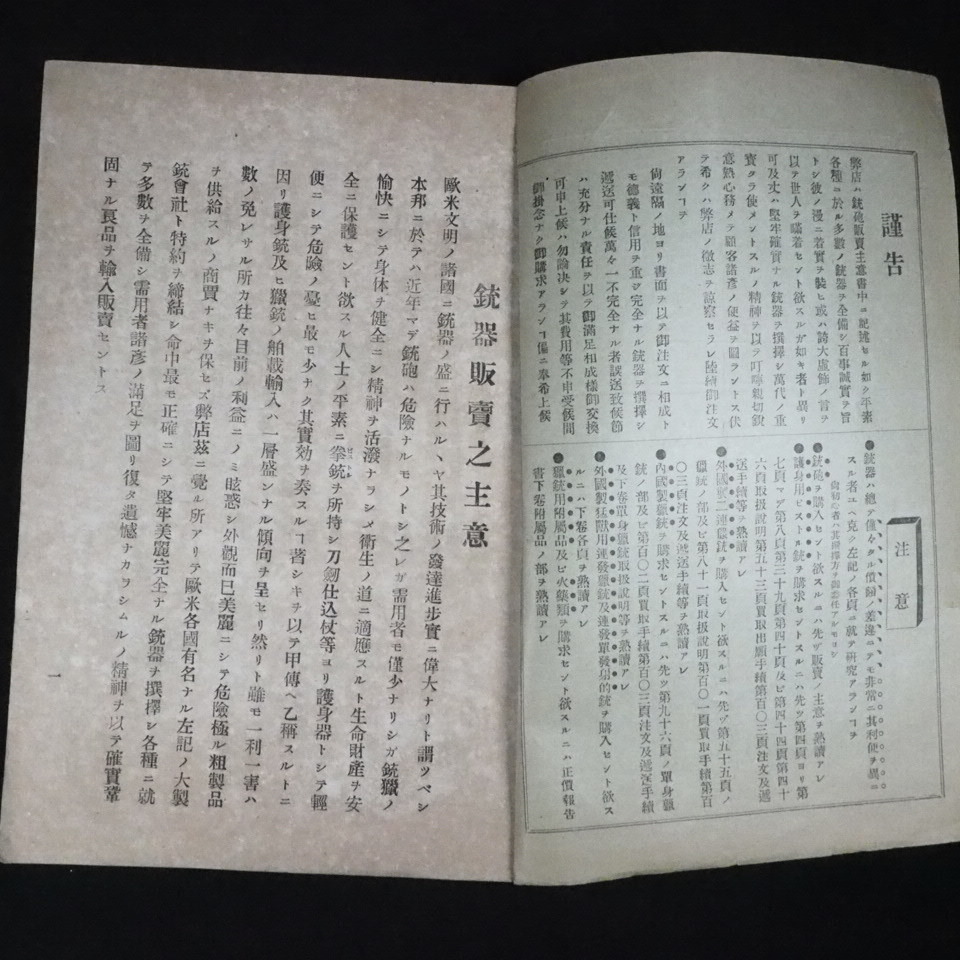 謹告
弊店ハ銃砲販賣主意書中ニ記述セル如ク平素
各種ニ於ル多數ノ銃器ヲ全備シ百事誠實ヲ旨
トシ彼ノ漫ニ着實ヲ裝ヒ或ハ誇大虛飾ノ言ヲ
以テ世人ヲ瞞着セント欲スルガ如キ者ト異リ
可及丈ハ堅牢確實ナル銃器ヲ撰擇シ萬代ノ重
寶タラ使メントスルノ精神ヲ以テ叮嚀親切鋭
意熱心務メテ顧客諸彥ノ便益ヲ圖ラントス伏
テ希クハ弊店ノ微志ヲ諒察セラレ陸續御注文
アランヿヲ
尙遠隔ノ地ヨリ書面ヲ以テ御注文ニ相成トモ
德義ト信用ヲ重ジ完全ナル銃器ヲ撰擇シ
遞送可仕候萬々一不完全ナル者誤送致候節
ハ充分ナル責任ヲ以テ御滿足相成樣御交換
可申上候ハ勿論決シテ其費用等不申受候間
御掛念ナク御購求アランヿ偏ニ奉希上候
注意
●銃器ハ總テ僅々タル價額ノ差違ニテモ非常ニ其利便ヲ異ニ
スル者ユヘ克ク左記ノ各頁ニ就テ研究アランヿヲ
●銃砲ヲ購入セント欲スルニハ先ヅ販賣ノ主意ヲ熟讀アレ
●護身用ピストル銃ヲ購求セントスルニハ先ツ第四頁ヨリ第
七頁マデ第八頁第三十九頁第四十頁及ビ第四十四頁第四十
六頁取扱說明第五十三頁買取出願手續第百〇三頁注文及遞
送手續等ヲ熟讀アレ
●外國製二連獵銃ヲ購入セント欲スルニハ先ヅ第五十五頁ノ
獵銃ノ部及ビ第八十一頁取扱說明第百〇一頁買取手續第百
〇三頁注文及遞送手續等ヲ熟讀アレ
●內國製獵銃ヲ購求セントスルニハ先ツ第九十六頁ノ單身獵
銃ノ部及ビ第百〇二頁買取手續第百〇三頁注文及遞送手續
及下卷單身獵銃取扱說明等ヲ熟讀アレ
●外國製猛獸用連發獵銃及連發單發射的銃ヲ購入セント欲ス
ルニハ下卷各頁ヲ熟讀アレ
●獵銃用附屬品及ビ火藥類ヲ購求セント欲スルニハ正價報吿
書下卷附屬品ノ部ヲ熟讀アレ
銃器販賣之主意
歐米文明ノ諸國ニ銃器ノ盛ニ行ハルヽヤ其技術ノ發達進步實ニ偉大ナリト謂ツベシ
本邦ニ於テハ近年マデ銃砲ハ危險ナルモノトシ之レガ需用者モ僅少ナリシガ銃獵ノ
愉快ニシテ身体ヲ健全ニシ精神ヲ活潑ナラシメ衛生ノ道ニ適應スルト生命財產ヲ安
全ニ保護セント欲スル人士ノ平素ニ拳銃ヲ所持シ刀劒仕込杖等ヨリ護身器トシテ輕
便ニシテ危險ノ憂ヒ最モ少ナク其實効ヲ奏スルヿ著シキヲ以テ甲傳ヘ乙稱スルトニ
因リ護身銃及ヒ獵銃ノ舶載輸入ハ一層盛ンナル傾向ヲ呈セリ然リト雖モ一利一害ハ
數ノ免レサル所カ往々目前ノ利益ニノミ眩惑シ外觀而已美麗ニシテ危險極ル粗製品
ヲ供給スルノ商賈ナキヲ保セズ弊店茲ニ覺ル所アリテ歐米各國有名ナル左記ノ大製
銃會社ト特約ヲ締結シ命中最モ正確ニシテ堅牢美麗完全ナル銃器ヲ撰擇シ各種ニ就
テ多數ヲ全備シ需用者諸彥ノ滿足ヲ圖リ復タ遺憾ナカラシムルノ精神ヲ以テ確實鞏
固ナル良品ヲ輸入販賣セントス
一